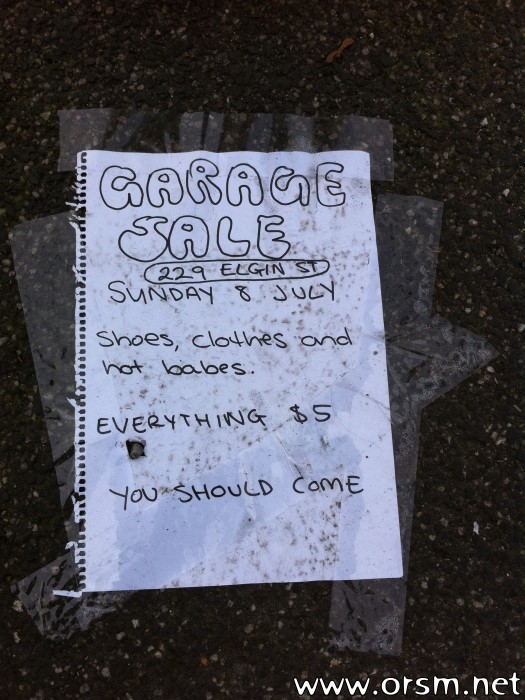 GARAGE
SALE
229 ELGIN ST
SUNDAY 8 JULY
Shoes, clothes and
hot babes.
EVERYTHING $5
YOU SHOULD COME
www.orsm.net